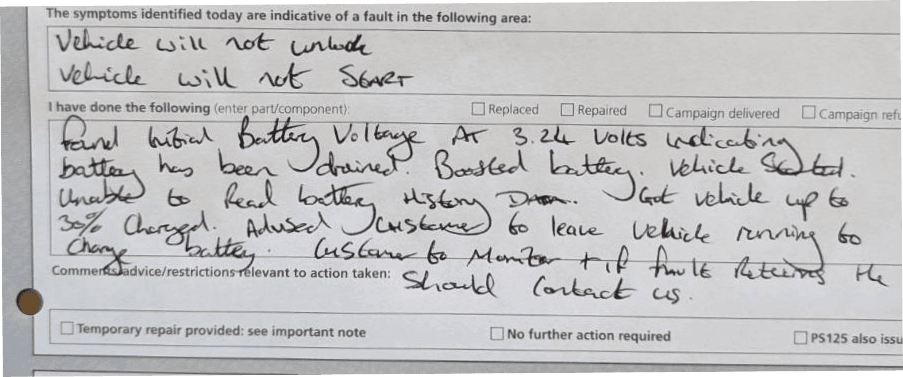 The symptoms identified today are indicative of a fault in the following area:
Vehicle will not unlock
Vehicle will not START
I have done the following (enter part/component): Replaced Repaired Campaign delivered Campaign refu
Found Initial Battery Voltage At 3.24 Volts indicating
battery has been drained. Boosted battery. Vehicle Started.
Unable to Read battery History Data. Got vehicle up to
30% Charged. Advised Customer to leave vehicle running to
Charge battery. Customer to Monitor + if fault Returns He
Comments/advice/restrictions relevant to action taken: Should Contact us.
Temporary repair provided: see important note No further action required PS125 also issu